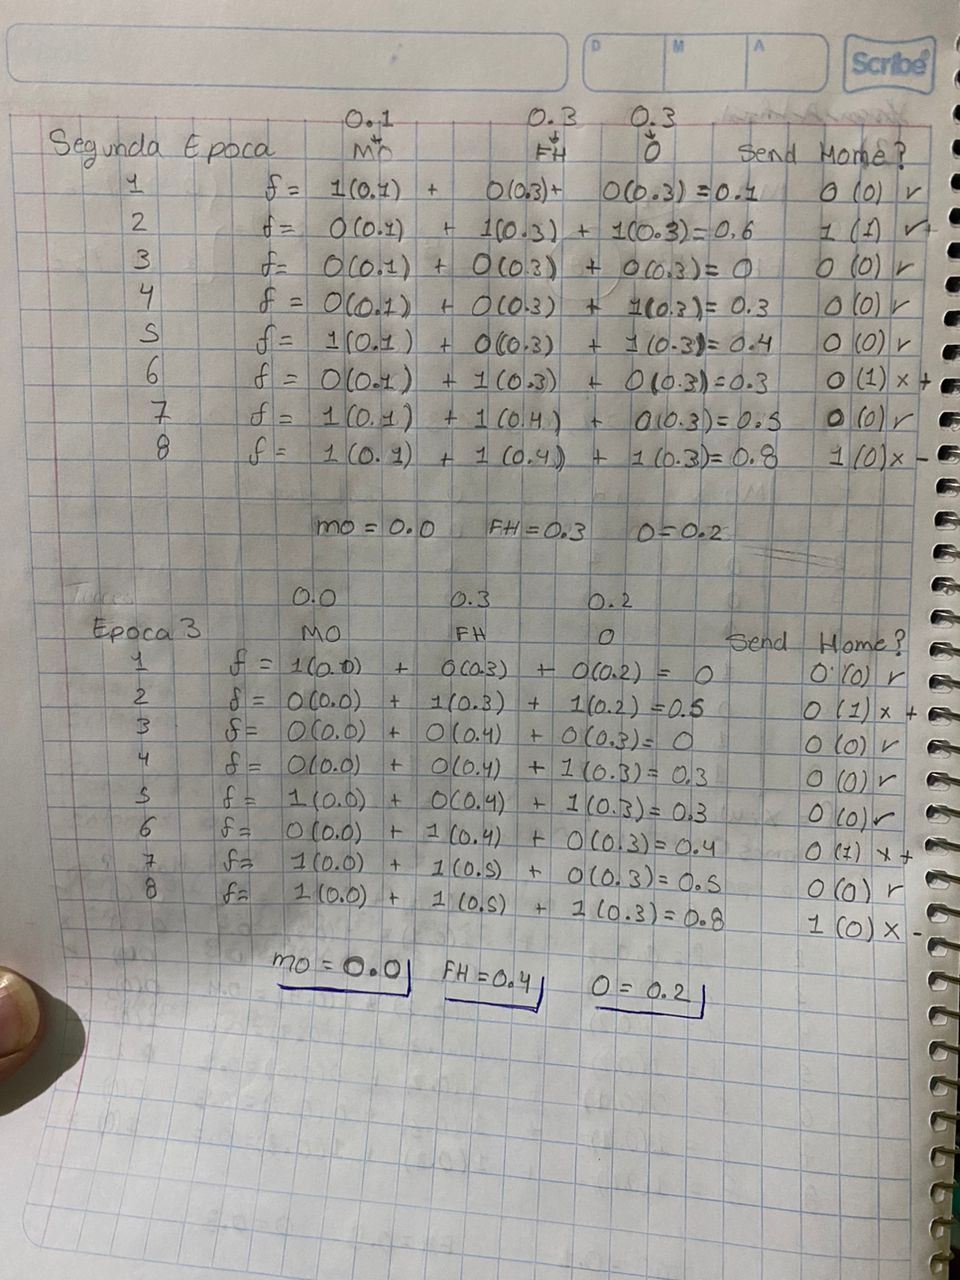 D M A Scribe
0.1 0.3 0.3
Segunda Epoca MO FH O Send Home?
1 f = 1(0.1) + 0(0.3) + 0(0.3) = 0.1 0 (0) ✓
2 f = 0(0.1) + 1(0.3) + 1(0.3) = 0.6 1 (1) ✓+
3 f = 0(0.1) + 0(0.3) + 0(0.3) = 0 0 (0) ✓
4 f = 0(0.1) + 0(0.3) + 1(0.3) = 0.3 0 (0) ✓
5 f = 1(0.1) + 0(0.3) + 1(0.3) = 0.4 0 (0) ✓
6 f = 0(0.1) + 1(0.3) + 0(0.3) = 0.3 0 (1) x +
7 f = 1(0.1) + 1(0.4) + 0(0.3) = 0.5 0 (0) ✓
8 f = 1(0.1) + 1(0.4) + 1(0.3) = 0.8 1 (0) x -
MO = 0.0 FH = 0.3 O = 0.2
0.0 0.3 0.2
Epoca 3 MO FH O Send Home?
1 f = 1(0.0) + 0(0.3) + 0(0.2) = 0 0 (0) ✓
2 f = 0(0.0) + 1(0.3) + 1(0.2) = 0.5 0 (1) x +
3 f = 0(0.0) + 0(0.4) + 0(0.3) = 0 0 (0) ✓
4 f = 0(0.0) + 0(0.4) + 1(0.3) = 0.3 0 (0) ✓
5 f = 1(0.0) + 0(0.4) + 1(0.3) = 0.3 0 (0) ✓
6 f = 0(0.0) + 1(0.4) + 0(0.3) = 0.4 0 (1) x +
7 f = 1(0.0) + 1(0.5) + 0(0.3) = 0.5 0 (0) ✓
8 f = 1(0.0) + 1(0.5) + 1(0.3) = 0.8 1 (0) x -
MO = 0.0 FH = 0.4 O = 0.2